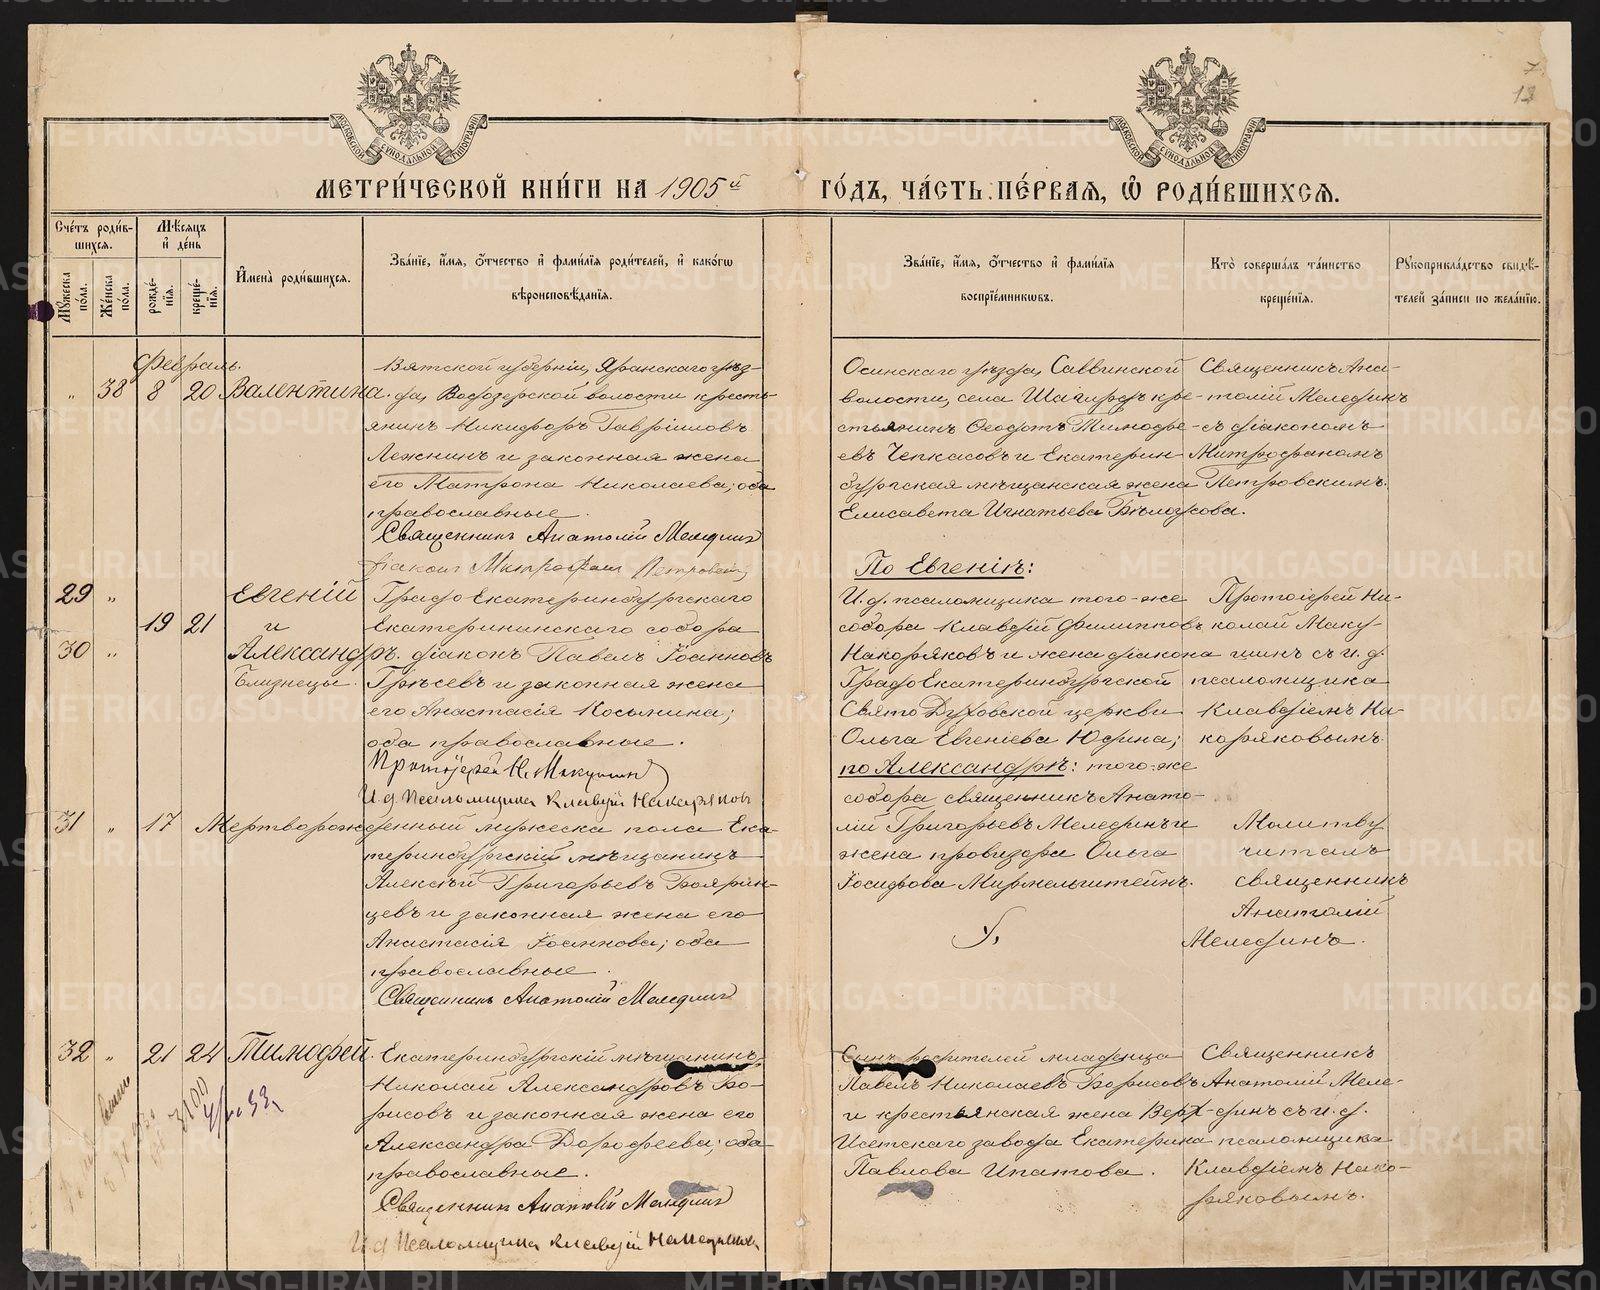 МЕТРИ́ЧЕСКОЙ КНИ́ГИ НА 1905й ГО́ДЪ, ЧА́СТЬ ПЕ́РВАЯ, Ѡ РОДИ́ВШИХСЯ.
7.
Сче́тъ роди́вшихся.
Мѣ́сяцъ и де́нь
Му́жеска по́ла.
Же́нска по́ла.
рожде́нїя.
креще́нїя.
Имена̀ роди́вшихся.
Зва́нїе, и́мя, о́тчество и фами́лїя роди́телей, и како́гѡ вѣроисповѣ́данїя.
Зва́нїе, и́мя, о́тчество и фами́лїя воспрїе́мниковъ.
Кто̀ соверша́лъ та́инство креще́нїя.
Рꙋкоприкла́дство свидѣ́телей за́писи по жела́нїю.
Февраль.
„ 38 8 20 Валентина.
Вятской губерніи, Яранскаго уѣз-
да, Водозерской волости кресть-
янинъ Никифоръ Гавріиловъ
Лежнинъ и законная жена
его Матрона Николаева; оба
православные.
Священникъ Анатолій Меледин
Діакон Митрофан Петровскій
Осинскаго уѣзда, Саввинской
волости, села Шагирдъ кре-
стьянинъ Ѳеодотъ Тимофе-
евъ Чепкасовъ и Екатерин
бургская мѣщанская жена
Елисавета Игнатьева Бѣлоусова.
Священникъ Ана-
толій Мелединъ
съ діакономъ
Митрофаномъ
Петровскимъ.
29 „
19 21
30 „
Евгеній
и
Александръ.
Близнецы.
Градо Екатеринбургскаго
Екатерининскаго собора
діаконъ Павелъ Іоанновъ
Грѣсевъ и законная жена
его Анастасія Косьмина;
оба православные.
Протоіерей Н. Макушин
И. д. Псаломщика Клавдій Накоряков
По Евгеніѣ:
И. д. псаломщика того-же
собора Клавдій Филипповъ
Накоряковъ и жена діакона
Градо Екатеринбургской
Свято Духовской церкви
Ольга Евгеніева Юдина;
по Александрѣ: того-же
собора священникъ Анато-
лій Григорьевъ Меледин и
жена провизора Ольга
Іосифова Мирмельштейнъ.
Протоіерей Ни-
колай Маку-
шинъ съ и. д.
псаломщика
Клавдіемъ На-
коряковымъ.
31 „ 17 Мертворожденный мужеска пола Ека-
теринбургскій мѣщанинъ
Алексѣй Григорьевъ Боярин-
цевъ и законная жена его
Анастасія Іоаннова; оба
православные.
Священникъ Анатолій Меледин
Молитву
читалъ
священникъ
Анатолій
Меледин.
32 „ 21 24 Тимофей.
Екатеринбургскій мѣщанинъ
Николай Александровъ Бо-
рисовъ и законная жена его
Александра Дорофеева; оба
православные.
Священник Анатолій Меледин
И. д. Псаломщика Клавдій Накоряков
Сынъ родителей младенца
Павелъ Николаевъ Борисовъ
и крестьянская жена Верх-
Исетскаго завода Екатерина
Павлова Ипатова.
Священникъ
Анатолій Меле-
динъ съ и. д.
псаломщика
Клавдіемъ Нако-
ряковымъ.
METRIKI.GASO-URAL.RU